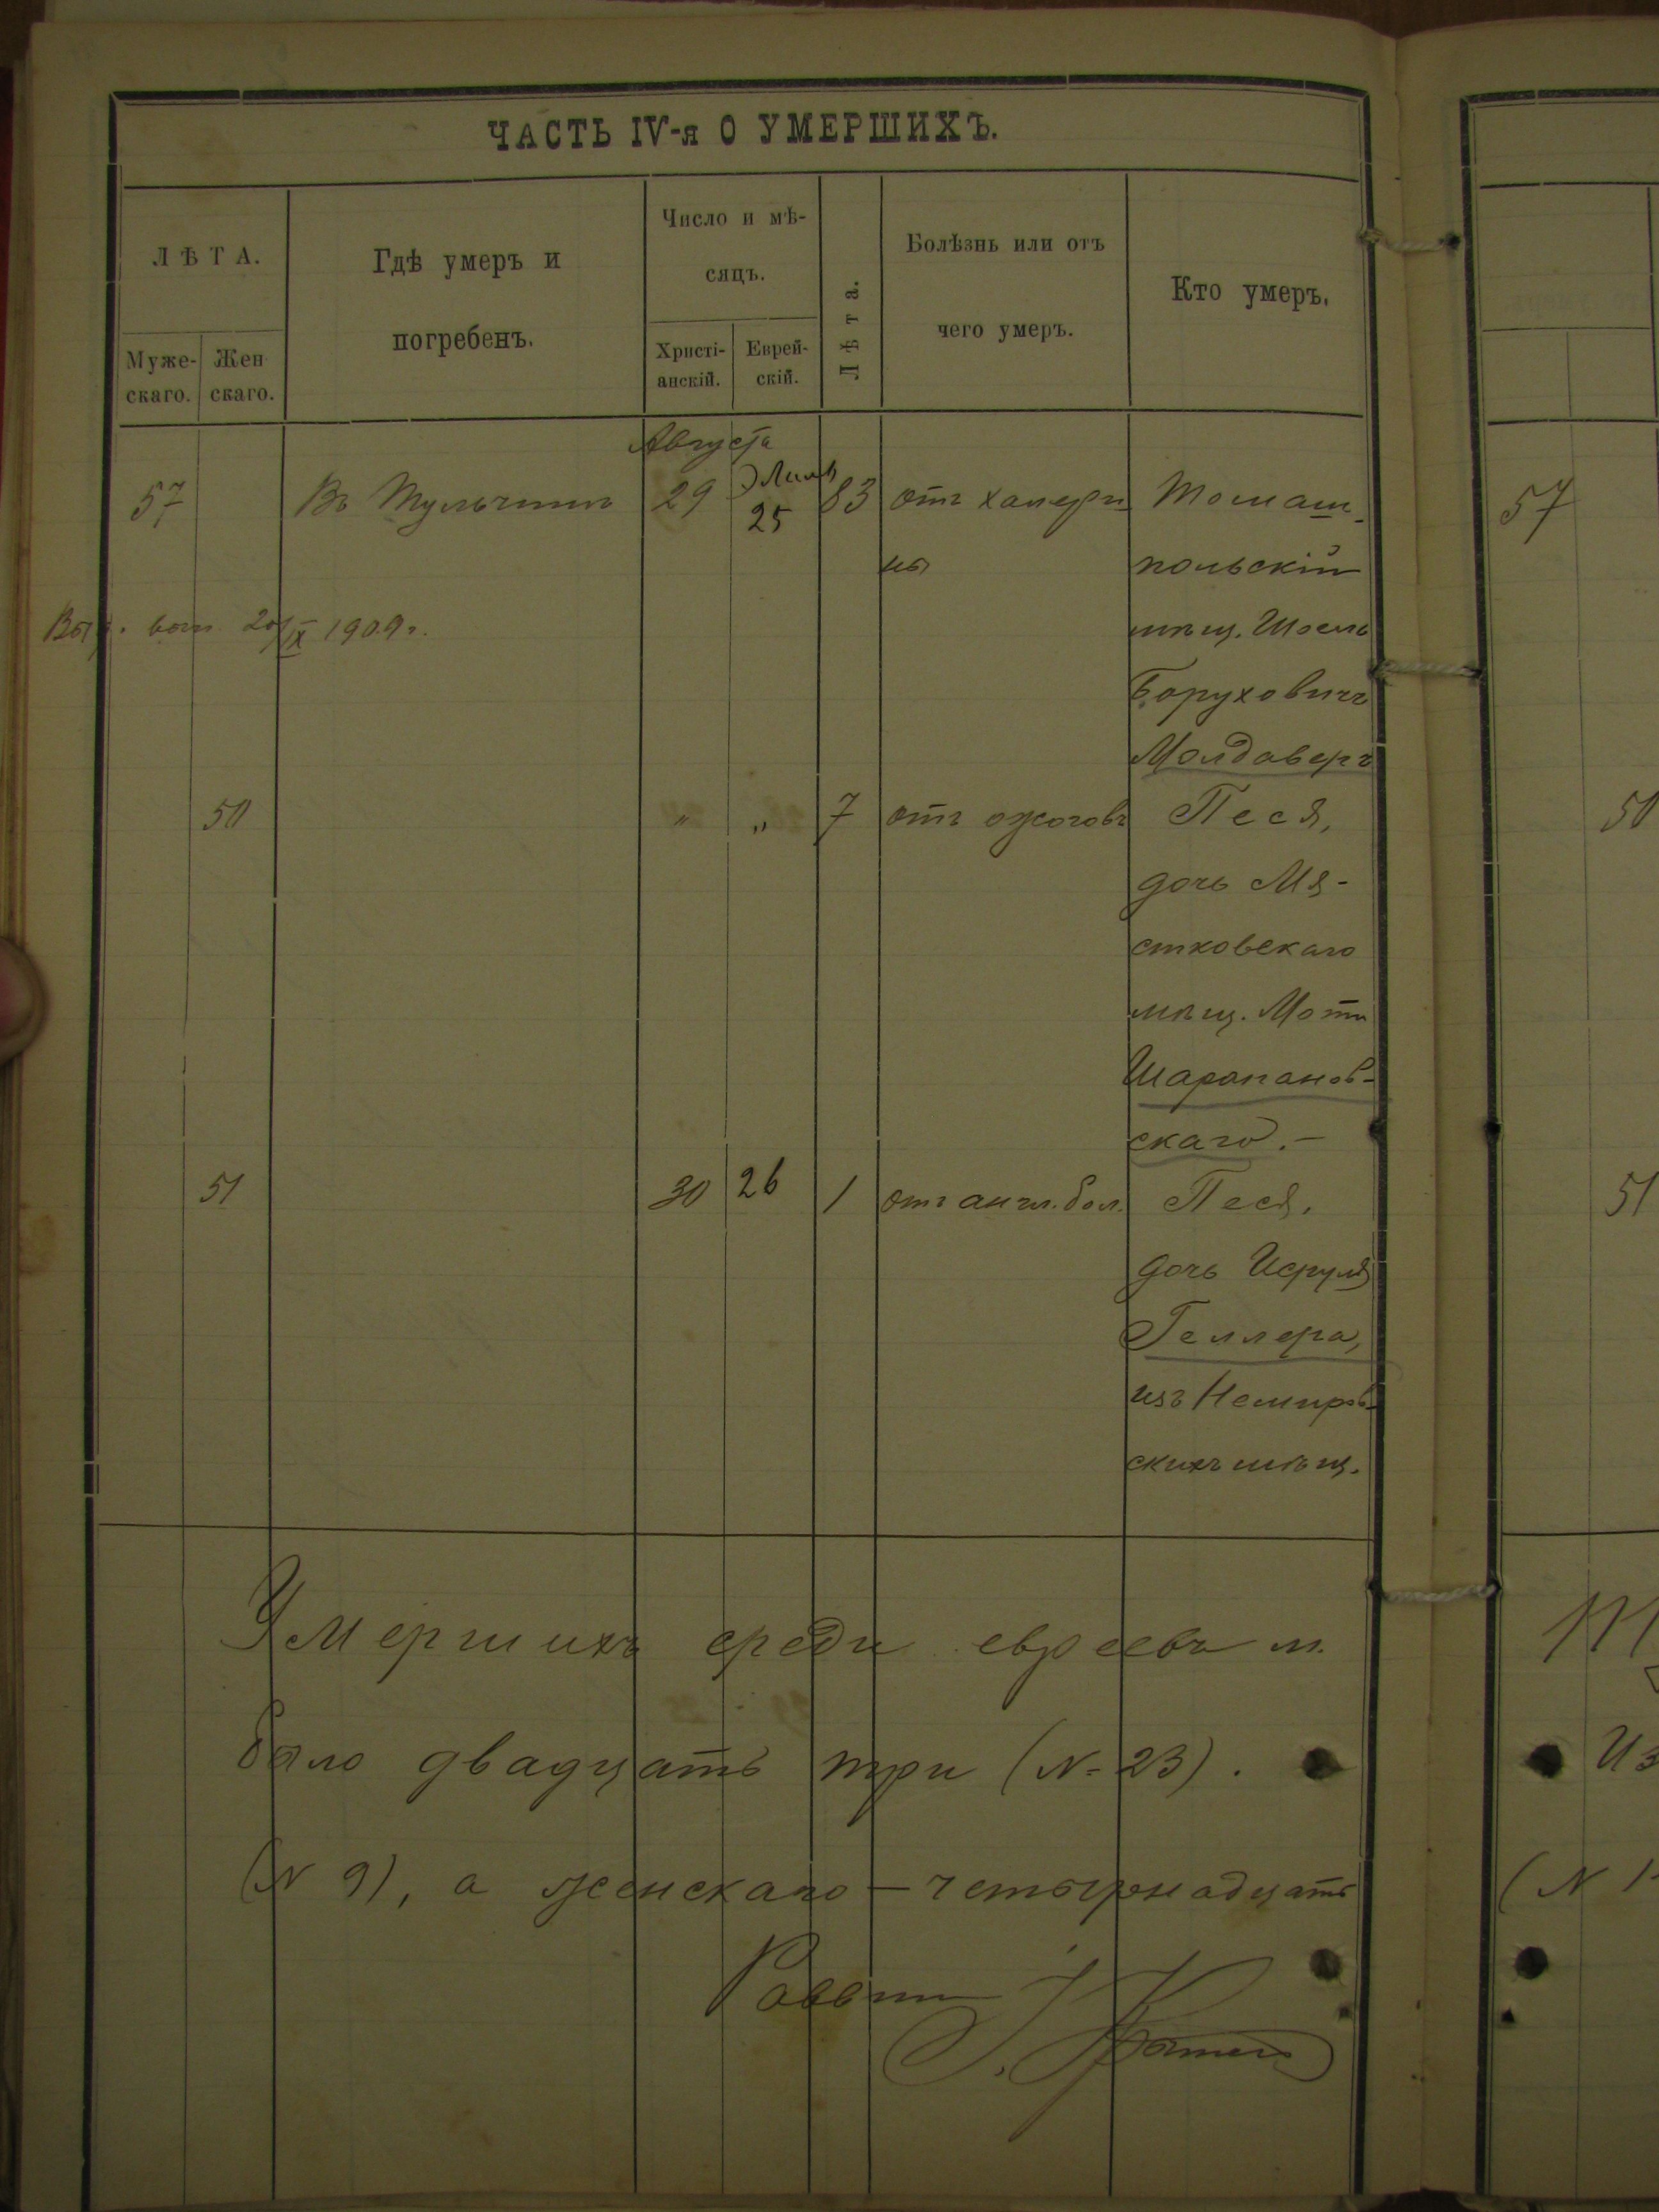 ЧАСТЬ IV-я О УМЕРШИХЪ.
ЛѢТА.
Муже-
скаго.
Жен
скаго.
Гдѣ умеръ и
погребенъ.
Число и мѣ-
сяцъ.
Христі-
анскій.
Еврей-
скій.
Лѣта.
Болѣзнь или отъ
чего умеръ.
Кто умеръ.
Августа
57 Въ Тульчинѣ 29 Элилъ 25 83 отъ холери
ны
Томаш-
польскій
мѣщ. Шоель
Боруховичъ
Молдаверъ
20/IX 1909 г.
50 " " 7 отъ ожоговъ Песя,
дочь Мя-
стковскаго
мѣщ. Моти
Шарапанов-
скаго.-
51 30 26 1 отъ англ. бол. Песя,
дочь Исруля
Геллера,
изъ Немиров-
скихъ мѣщ.
Умершихъ среди евреевъ м.
было двадцать три (№ 23).
(№ 9), а женскаго - четырнадцать
Раввин
57
50
51
Из
(№ 1